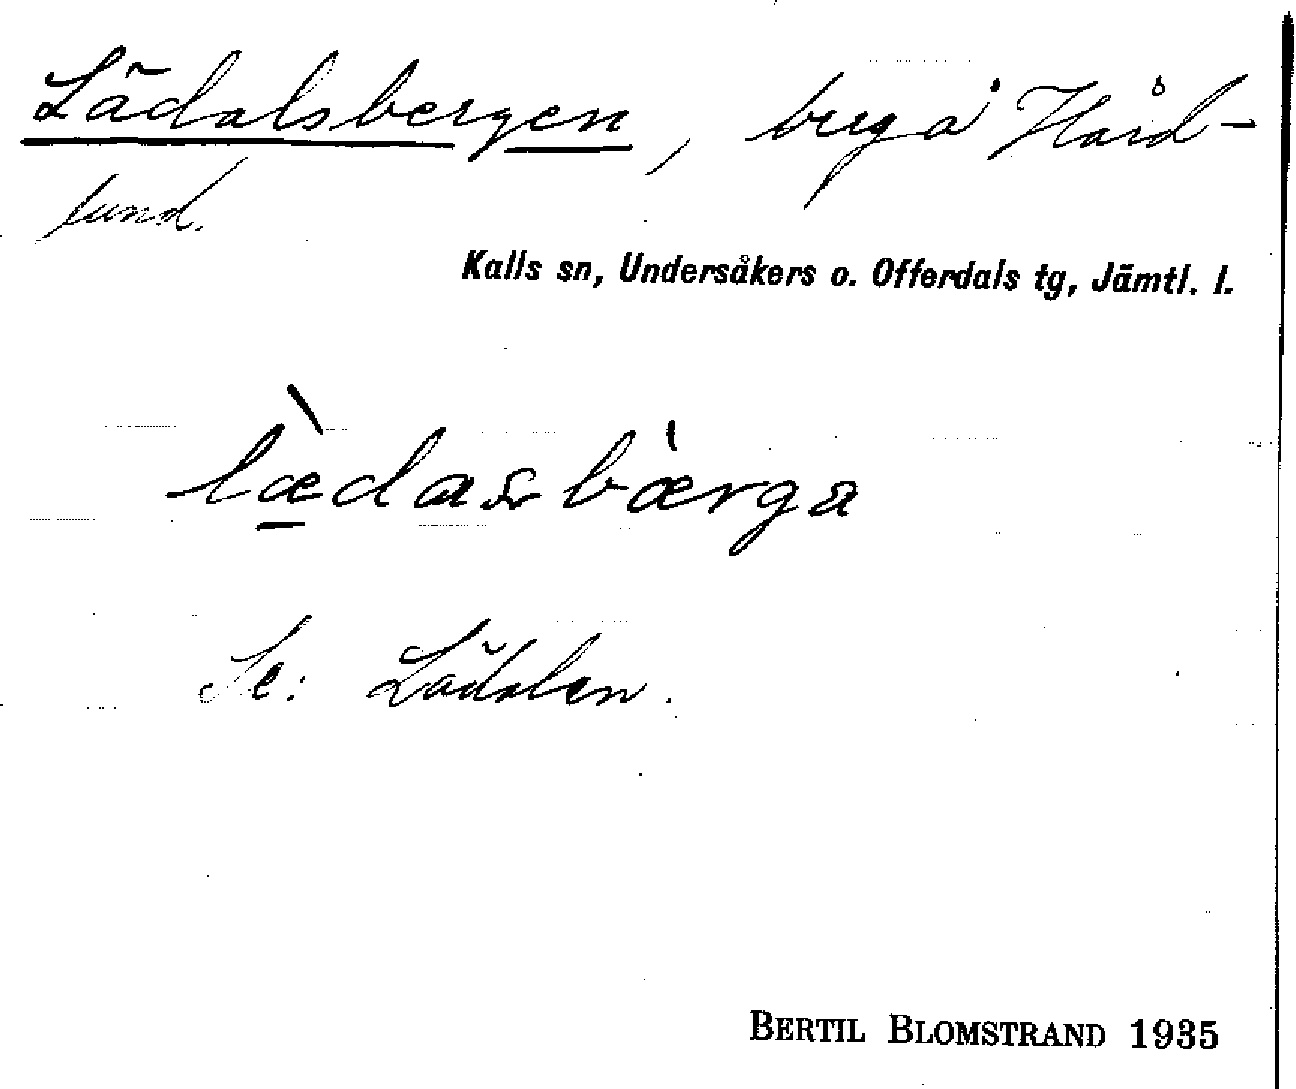 Lädalsbergen, berg å Hård-
lund.
Kalls sn, Undersåkers o. Offerdals tg, Jämtl. l.
Se: Lädalen.
BERTIL BLOMSTRAND 1935